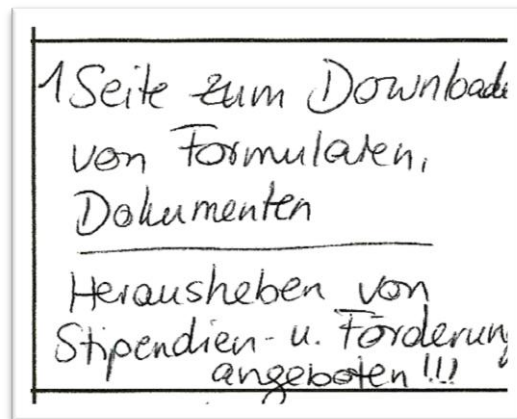 1 Seite zum Download
von Formularen,
Dokumenten
Herausheben von
Stipendien- u. Förderung
angeboten !!!